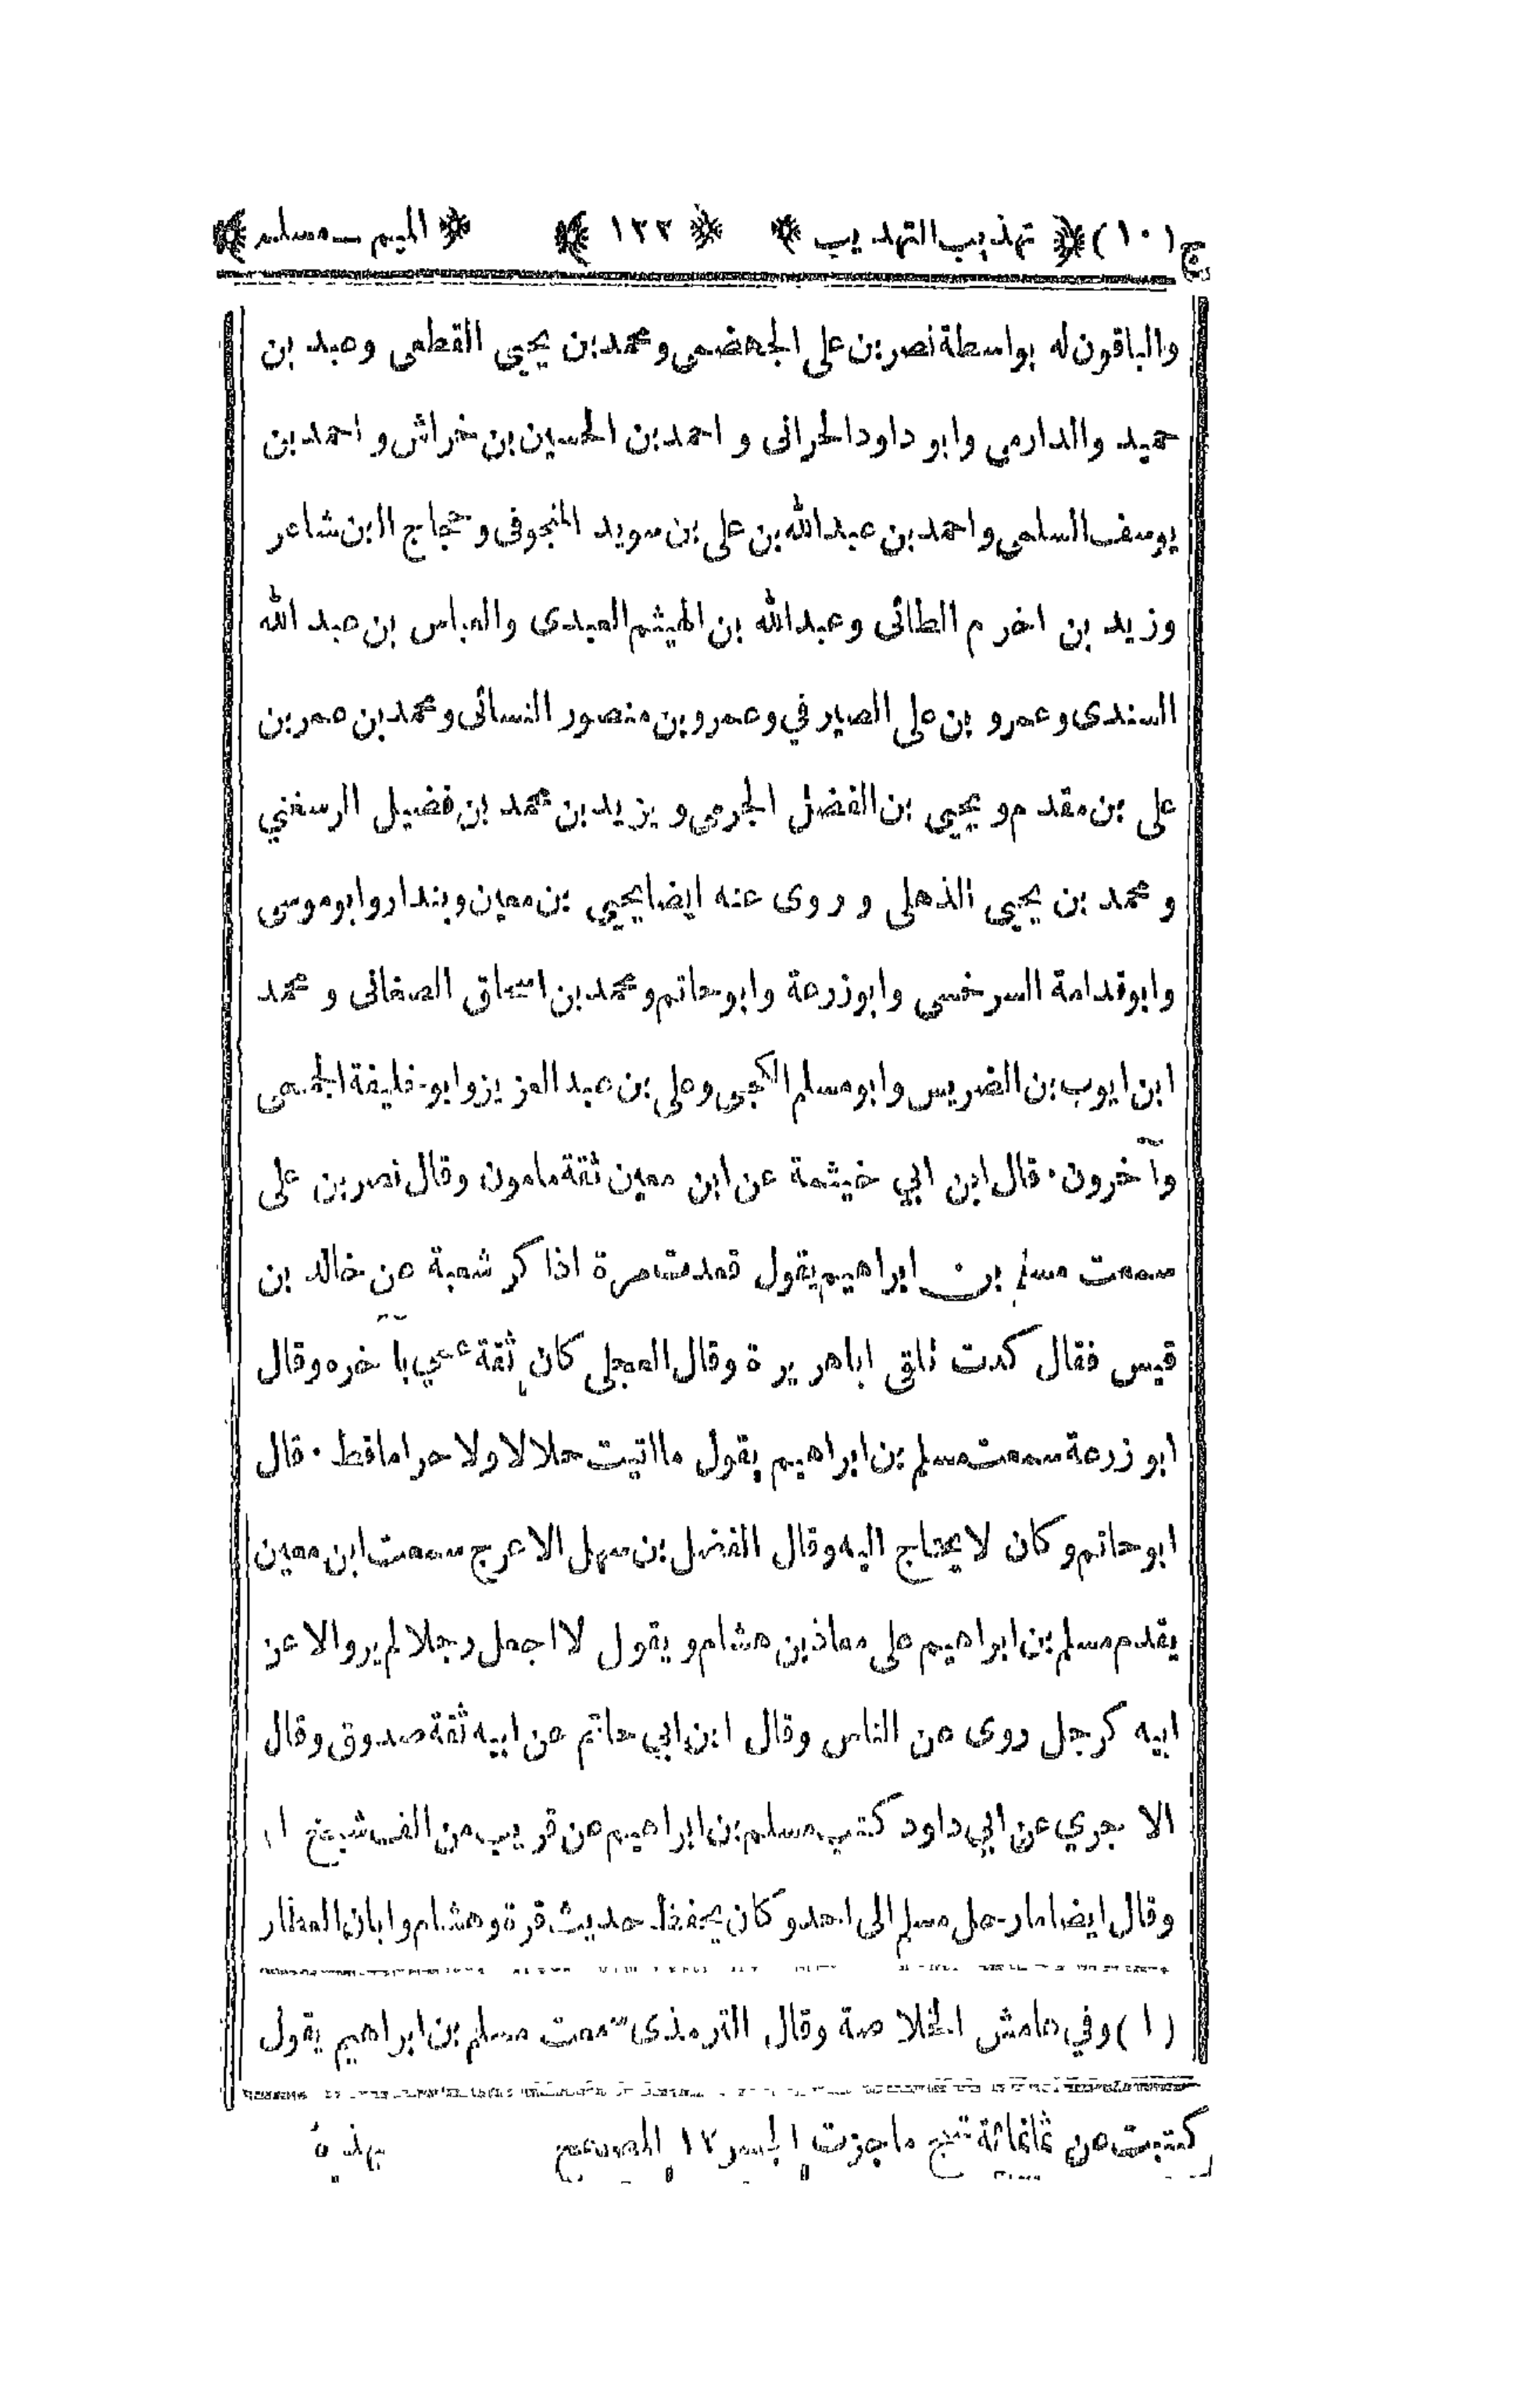 ج (١٠) ﴿ تهذيب التهذيب ﴾ ﴿ ١٢٢ ﴾ ﴿ الميم ــ مسلم ﴾
والباقون له بواسطة نصر بن علي الجهضمي ومحمد بن يحيى القطعي وعبد بن
حميد والدارمي وابو داود الحراني و احمد بن الحسين بن خراش و احمد بن
يوسف السلمي واحمد بن عبد الله بن علي بن سويد المنجوفي وحجاج ابن شاعر
وزيد بن اخرم الطائي وعبد الله بن الهيثم العبدي والعباس بن عبد الله
السندي وعمرو بن علي الصيرفي وعمرو بن منصور النسائي ومحمد بن عمر بن
علي بن مقدم ويحيى بن الفضل الجرمي ويزيد بن محمد بن فضيل الرسغني
و محمد بن يحيى الذهلي و روى عنه ايضا يحيى بن معين وبندار وابو موسى
وابو قدامة السرخسي وابو زرعة وابو حاتم ومحمد بن اسحاق الصغاني و محمد
ابن ايوب بن الضريس وابو مسلم الكجي وعلي بن عبد العزيز وابو خليفة الجمحي
وآخرون. قال ابن ابي خيثمة عن ابن معين ثقة مامون وقال نصر بن علي
سمعت مسلم بن ابراهيم يقول قعدت مرة اذاكر شعبة عن خالد بن
قيس فقال كدت تلقى اباهريرة وقال العجلي كان ثقة عمي بآخره وقال
ابو زرعة سمعت مسلم بن ابراهيم يقول ما اتيت حلالا ولا حراما قط. قال
ابو حاتم وكان لا يحتاج اليه وقال الفضل بن سهل الاعرج سمعت ابن معين
يقدم مسلم بن ابراهيم على معاذ بن هشام ويقول لا اجعل رجلا لم يرو الا عن
ابيه كرجل روى عن الناس وقال ابن ابي حاتم عن ابيه ثقة صدوق وقال
الاجري عن ابي داود كتب مسلم بن ابراهيم عن قريب من الف شيخ ١
وقال ايضا ما رحل مسلم الى احد وكان يحفظ حديث قرة وهشام وابان العطار
(١) وفي هامش الخلاصة وقال الترمذي سمعت مسلم بن ابراهيم يقول
كتبت عن ثمانمائة شيخ ما جزت الجسر ١٢ المصحح